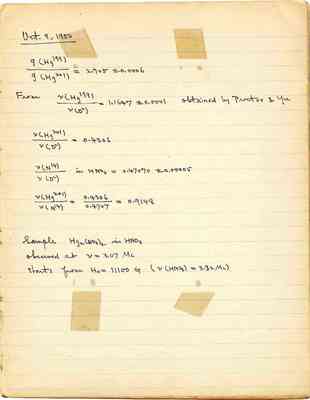 Oct. 9, 1950
g (Hg¹⁹⁹) / g (Hg²⁰¹) = 2.705 ± 0.0006
From ν(Hg¹⁹⁹) / ν(D²) = 1.1647 ± 0.0001 obtained by Proctor & Yu
ν(Hg²⁰¹) / ν(D²) = 0.4306
ν(N¹⁴) / ν(D²) in HNO₃ = 0.47070 ± 0.00005
ν(Hg²⁰¹) / ν(N¹⁴) = 0.4306 / 0.4707 = 0.9148
Sample Hg₂(NO₃)₂ in HNO₃
observed at ν = 3.07 Mc
starts from H₀ = 11100 G